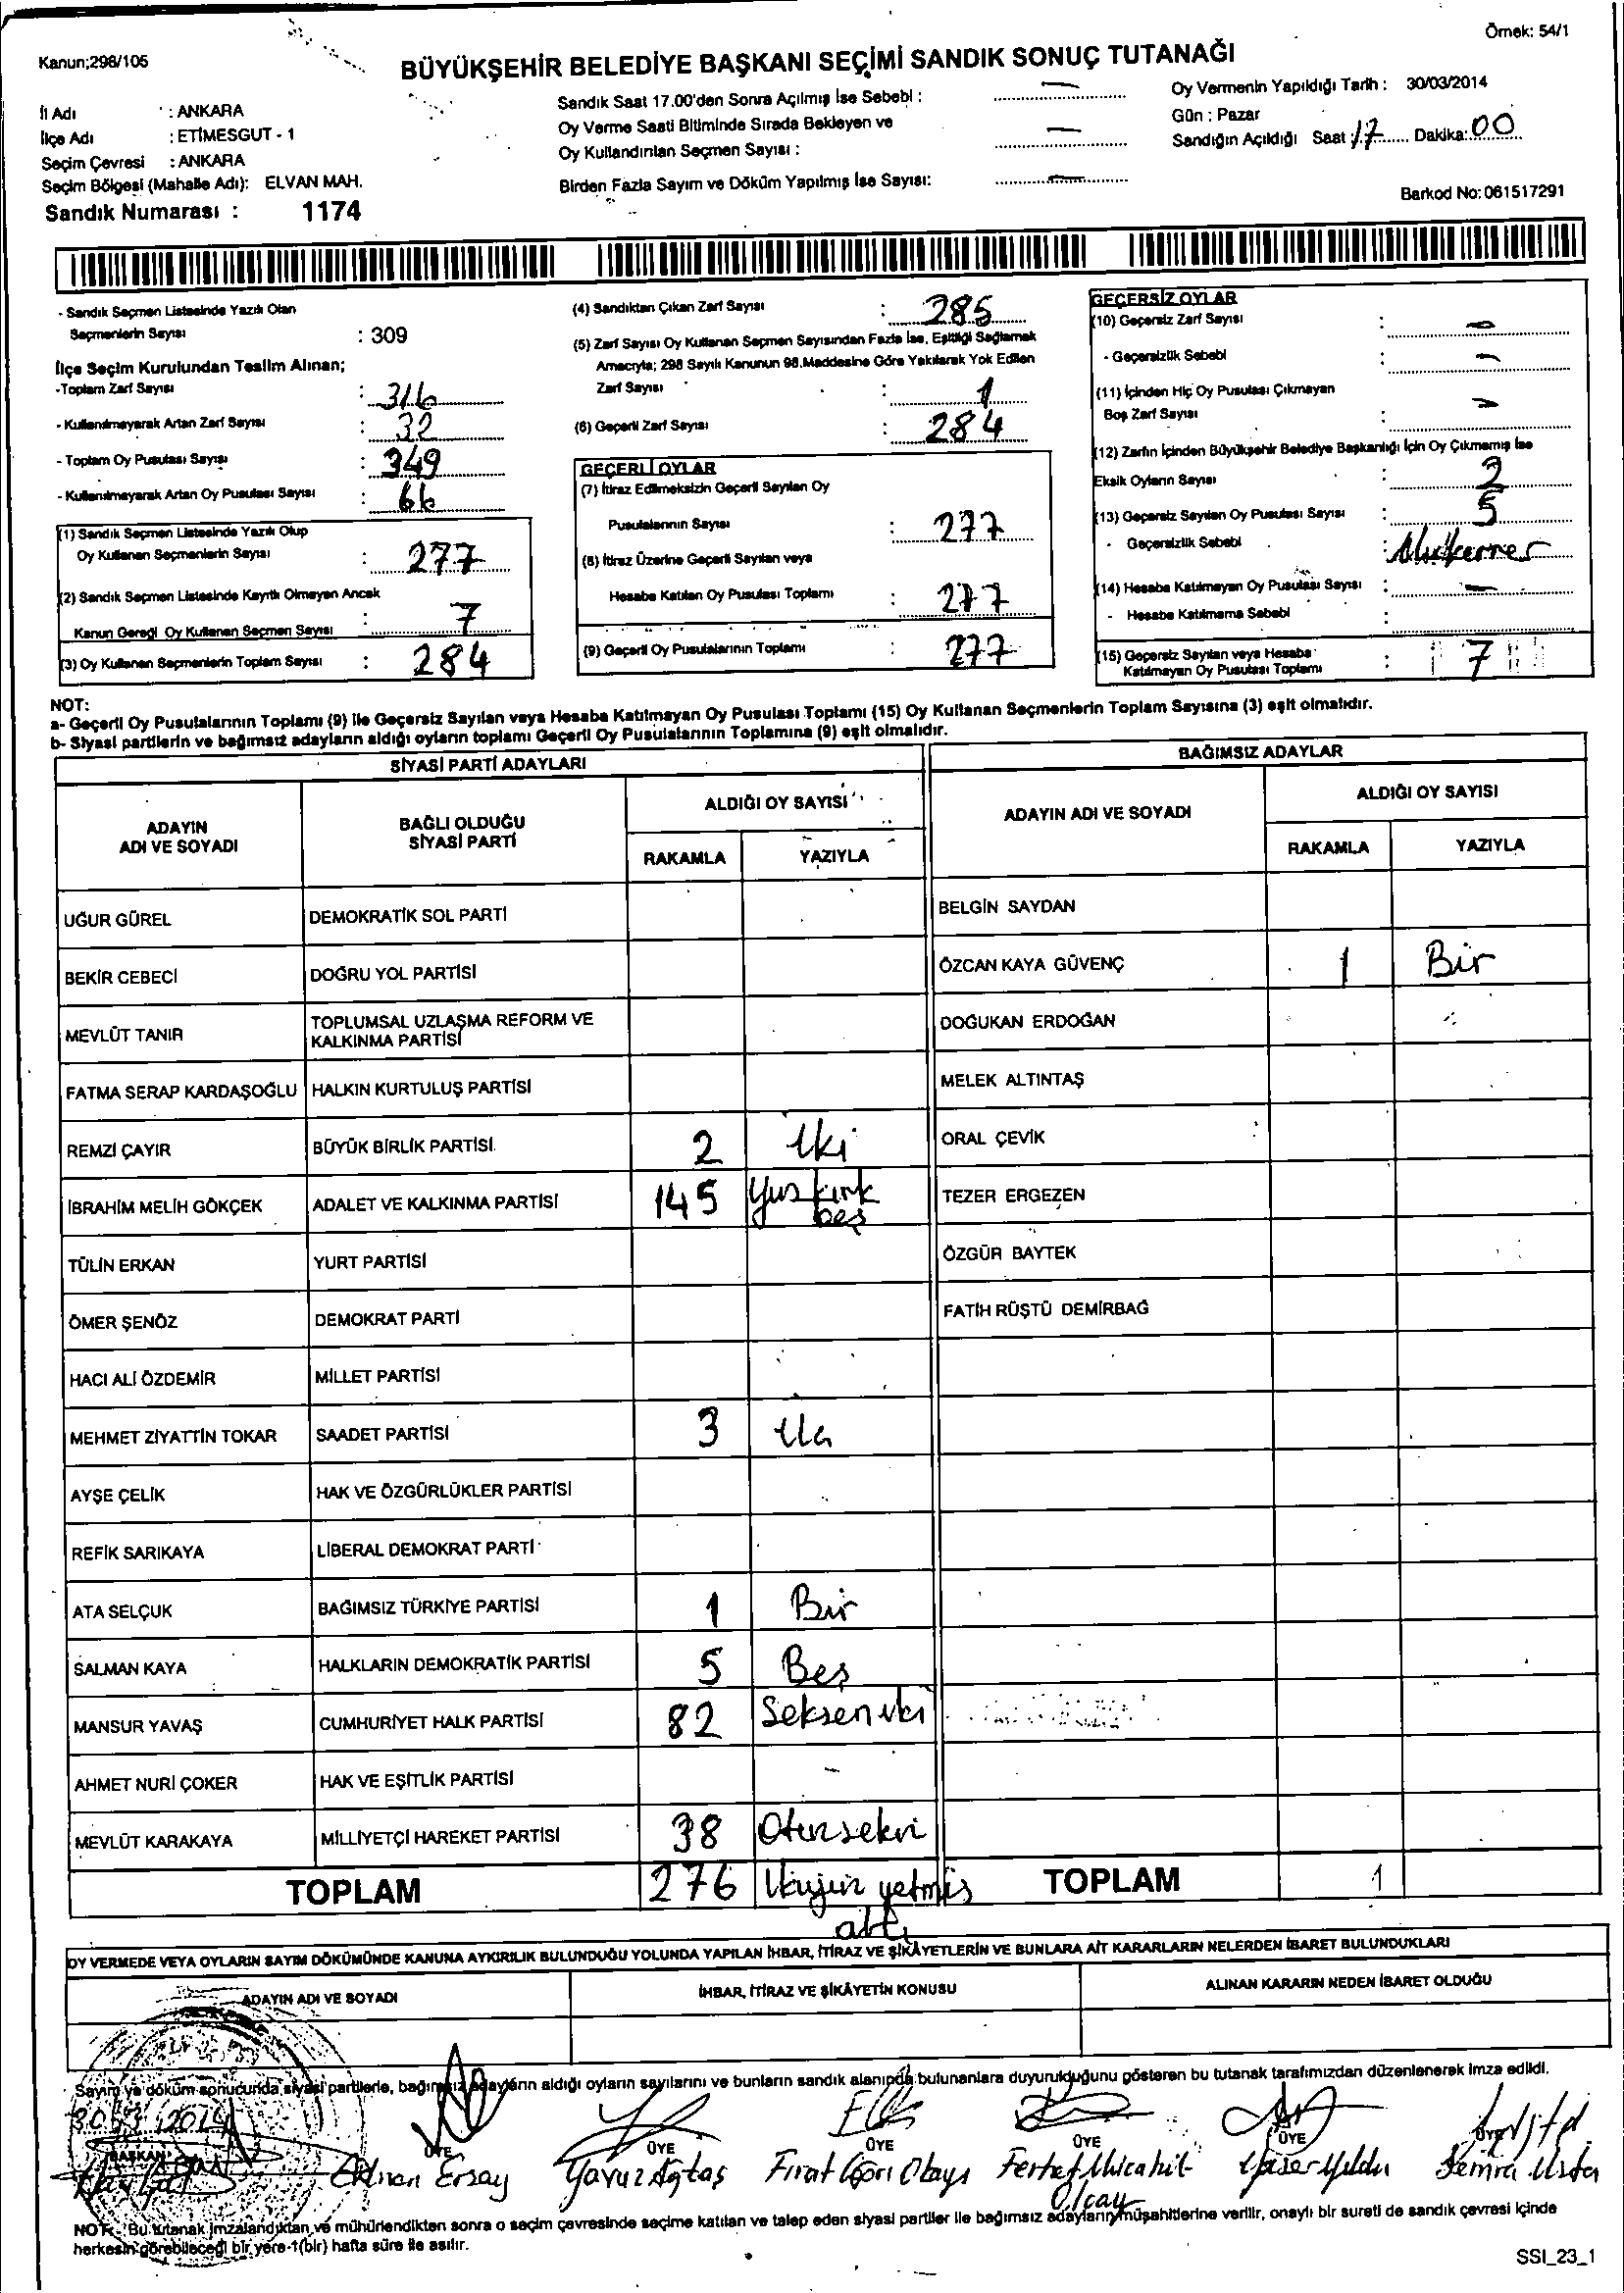 Örnek: 54/1
Kanun;298/105
BÜYÜKŞEHİR BELEDİYE BAŞKANI SEÇİMİ SANDIK SONUÇ TUTANAĞI
İl Adı : ANKARA
İlçe Adı : ETİMESGUT - 1
Seçim Çevresi : ANKARA
Seçim Bölgesi (Mahalle Adı): ELVAN MAH.
Sandık Numarası : 1174
Sandık Saat 17.00'den Sonra Açılmış İse Sebebi : —
Oy Verme Saati Bitiminde Sırada Bekleyen ve
Oy Kullandırılan Seçmen Sayısı : —
Birden Fazla Sayım ve Döküm Yapılmış İse Sayısı: —
Oy Vermenin Yapıldığı Tarih : 30/03/2014
Gün : Pazar
Sandığın Açıldığı Saat 17 Dakika: 00
Barkod No: 061517291
- Sandık Seçmen Listesinde Yazılı Olan
Seçmenlerin Sayısı : 309
İlçe Seçim Kurulundan Teslim Alınan;
-Toplam Zarf Sayısı : 316
- Kullanılmayarak Artan Zarf Sayısı : 32
- Toplam Oy Pusulası Sayışı : 349
- Kullanılmayarak Artan Oy Pusulası Sayısı : 66
(1) Sandık Seçmen Listesinde Yazılı Olup
Oy Kullanan Seçmenlerin Sayısı : 277
(2) Sandık Seçmen Listesinde Kayıtlı Olmayan Ancak
Kanun Gereği Oy Kullanan Seçmen Sayısı : 7
(3) Oy Kullanan Seçmenlerin Toplam Sayısı : 284
(4) Sandıktan Çıkan Zarf Sayısı : 285
(5) Zarf Sayısı Oy Kullanan Seçmen Sayısından Fazla İse, Eşitliği Sağlamak
Amacıyla; 298 Sayılı Kanunun 98.Maddesine Göre Yakılarak Yok Edilen
Zarf Sayısı : 1
(6) Geçerli Zarf Sayısı : 284
GEÇERLİ OYLAR
(7) İtiraz Edilmeksizin Geçerli Sayılan Oy
Pusulalarının Sayısı : 277
(8) İtiraz Üzerine Geçerli Sayılan veya
Hesaba Katılan Oy Pusulası Toplamı : 277
(9) Geçerli Oy Pusulalarının Toplamı : 277
GEÇERSİZ OYLAR
(10) Geçersiz Zarf Sayısı : —
- Geçersizlik Sebebi : —
(11) İçinden Hiç Oy Pusulası Çıkmayan
Boş Zarf Sayısı : —
(12) Zarfın İçinden Büyükşehir Belediye Başkanlığı İçin Oy Çıkmamış İse
Eksik Oyların Sayısı : 2
(13) Geçersiz Sayılan Oy Pusulası Sayısı : 5
- Geçersizlik Sebebi : Mükerrer
(14) Hesaba Katılmayan Oy Pusulası Sayısı : —
- Hesaba Katılmama Sebebi :
(15) Geçersiz Sayılan veya Hesaba
Katılmayan Oy Pusulası Toplamı : 7
NOT:
a- Geçerli Oy Pusulalarının Toplamı (9) ile Geçersiz Sayılan veya Hesaba Katılmayan Oy Pusulası Toplamı (15) Oy Kullanan Seçmenlerin Toplam Sayısına (3) eşit olmalıdır.
b- Siyasi partilerin ve bağımsız adayların aldığı oyların toplamı Geçerli Oy Pusulalarının Toplamına (9) eşit olmalıdır.
SİYASİ PARTİ ADAYLARI
ADAYIN ADI VE SOYADI
BAĞLI OLDUĞU SİYASİ PARTİ
ALDIĞI OY SAYISI
RAKAMLA YAZIYLA
UĞUR GÜREL DEMOKRATİK SOL PARTİ
BEKİR CEBECİ DOĞRU YOL PARTİSİ
MEVLÜT TANIR TOPLUMSAL UZLAŞMA REFORM VE
KALKINMA PARTİSİ
FATMA SERAP KARDAŞOĞLU HALKIN KURTULUŞ PARTİSİ
REMZİ ÇAYIR BÜYÜK BİRLİK PARTİSİ 2 iki
İBRAHİM MELİH GÖKÇEK ADALET VE KALKINMA PARTİSİ 145 Yüz kırk
beş
TÜLİN ERKAN YURT PARTİSİ
ÖMER ŞENÖZ DEMOKRAT PARTİ
HACI ALİ ÖZDEMİR MİLLET PARTİSİ
MEHMET ZİYATTİN TOKAR SAADET PARTİSİ 3
AYŞE ÇELİK HAK VE ÖZGÜRLÜKLER PARTİSİ
REFİK SARIKAYA LİBERAL DEMOKRAT PARTİ
ATA SELÇUK BAĞIMSIZ TÜRKİYE PARTİSİ 1 Bir
SALMAN KAYA HALKLARIN DEMOKRATİK PARTİSİ 5 Beş
MANSUR YAVAŞ CUMHURİYET HALK PARTİSİ 82 Seksen iki
AHMET NURİ ÇOKER HAK VE EŞİTLİK PARTİSİ
MEVLÜT KARAKAYA MİLLİYETÇİ HAREKET PARTİSİ 38 Otuzsekiz
TOPLAM 276 İkiyüz yetmiş
altı
BAĞIMSIZ ADAYLAR
ADAYIN ADI VE SOYADI
ALDIĞI OY SAYISI
RAKAMLA YAZIYLA
BELGİN SAYDAN
ÖZCAN KAYA GÜVENÇ 1 Bir
DOĞUKAN ERDOĞAN
MELEK ALTINTAŞ
ORAL ÇEVİK
TEZER ERGEZEN
ÖZGÜR BAYTEK
FATİH RÜŞTÜ DEMİRBAĞ
TOPLAM 1
OY VERMEDE VEYA OYLARIN SAYIM DÖKÜMÜNDE KANUNA AYKIRILIK BULUNDUĞU YOLUNDA YAPILAN İHBAR, İTİRAZ VE ŞİKÂYETLERİN VE BUNLARA AİT KARARLARIN NELERDEN İBARET BULUNDUKLARI
ADAYIN ADI VE SOYADI
İHBAR, İTİRAZ VE ŞİKÂYETİN KONUSU
ALINAN KARARIN NEDEN İBARET OLDUĞU
Sayım ve döküm sonucunda, siyasi partilerle, bağımsız adayların aldığı oyların sayılarını ve bunların sandık alanında bulunanlara duyurulduğunu gösteren bu tutanak tarafımızdan düzenlenerek imza edildi.
BAŞKAN ÜYE ÜYE ÜYE ÜYE ÜYE ÜYE
Adnan Ersay Yavuz Agtaş Fırat Ferhat Mücahit Yaşar Yıldız Semra Usta
Olcay
NOT:- Bu tutanak imzalandıktan ve mühürlendikten sonra o seçim çevresinde seçime katılan ve talep eden siyasi partiler ile bağımsız adayların müşahitlerine verilir, onaylı bir sureti de sandık çevresi içinde
herkesin görebileceği bir yere 1(bir) hafta süre ile asılır.
SSI_23_1